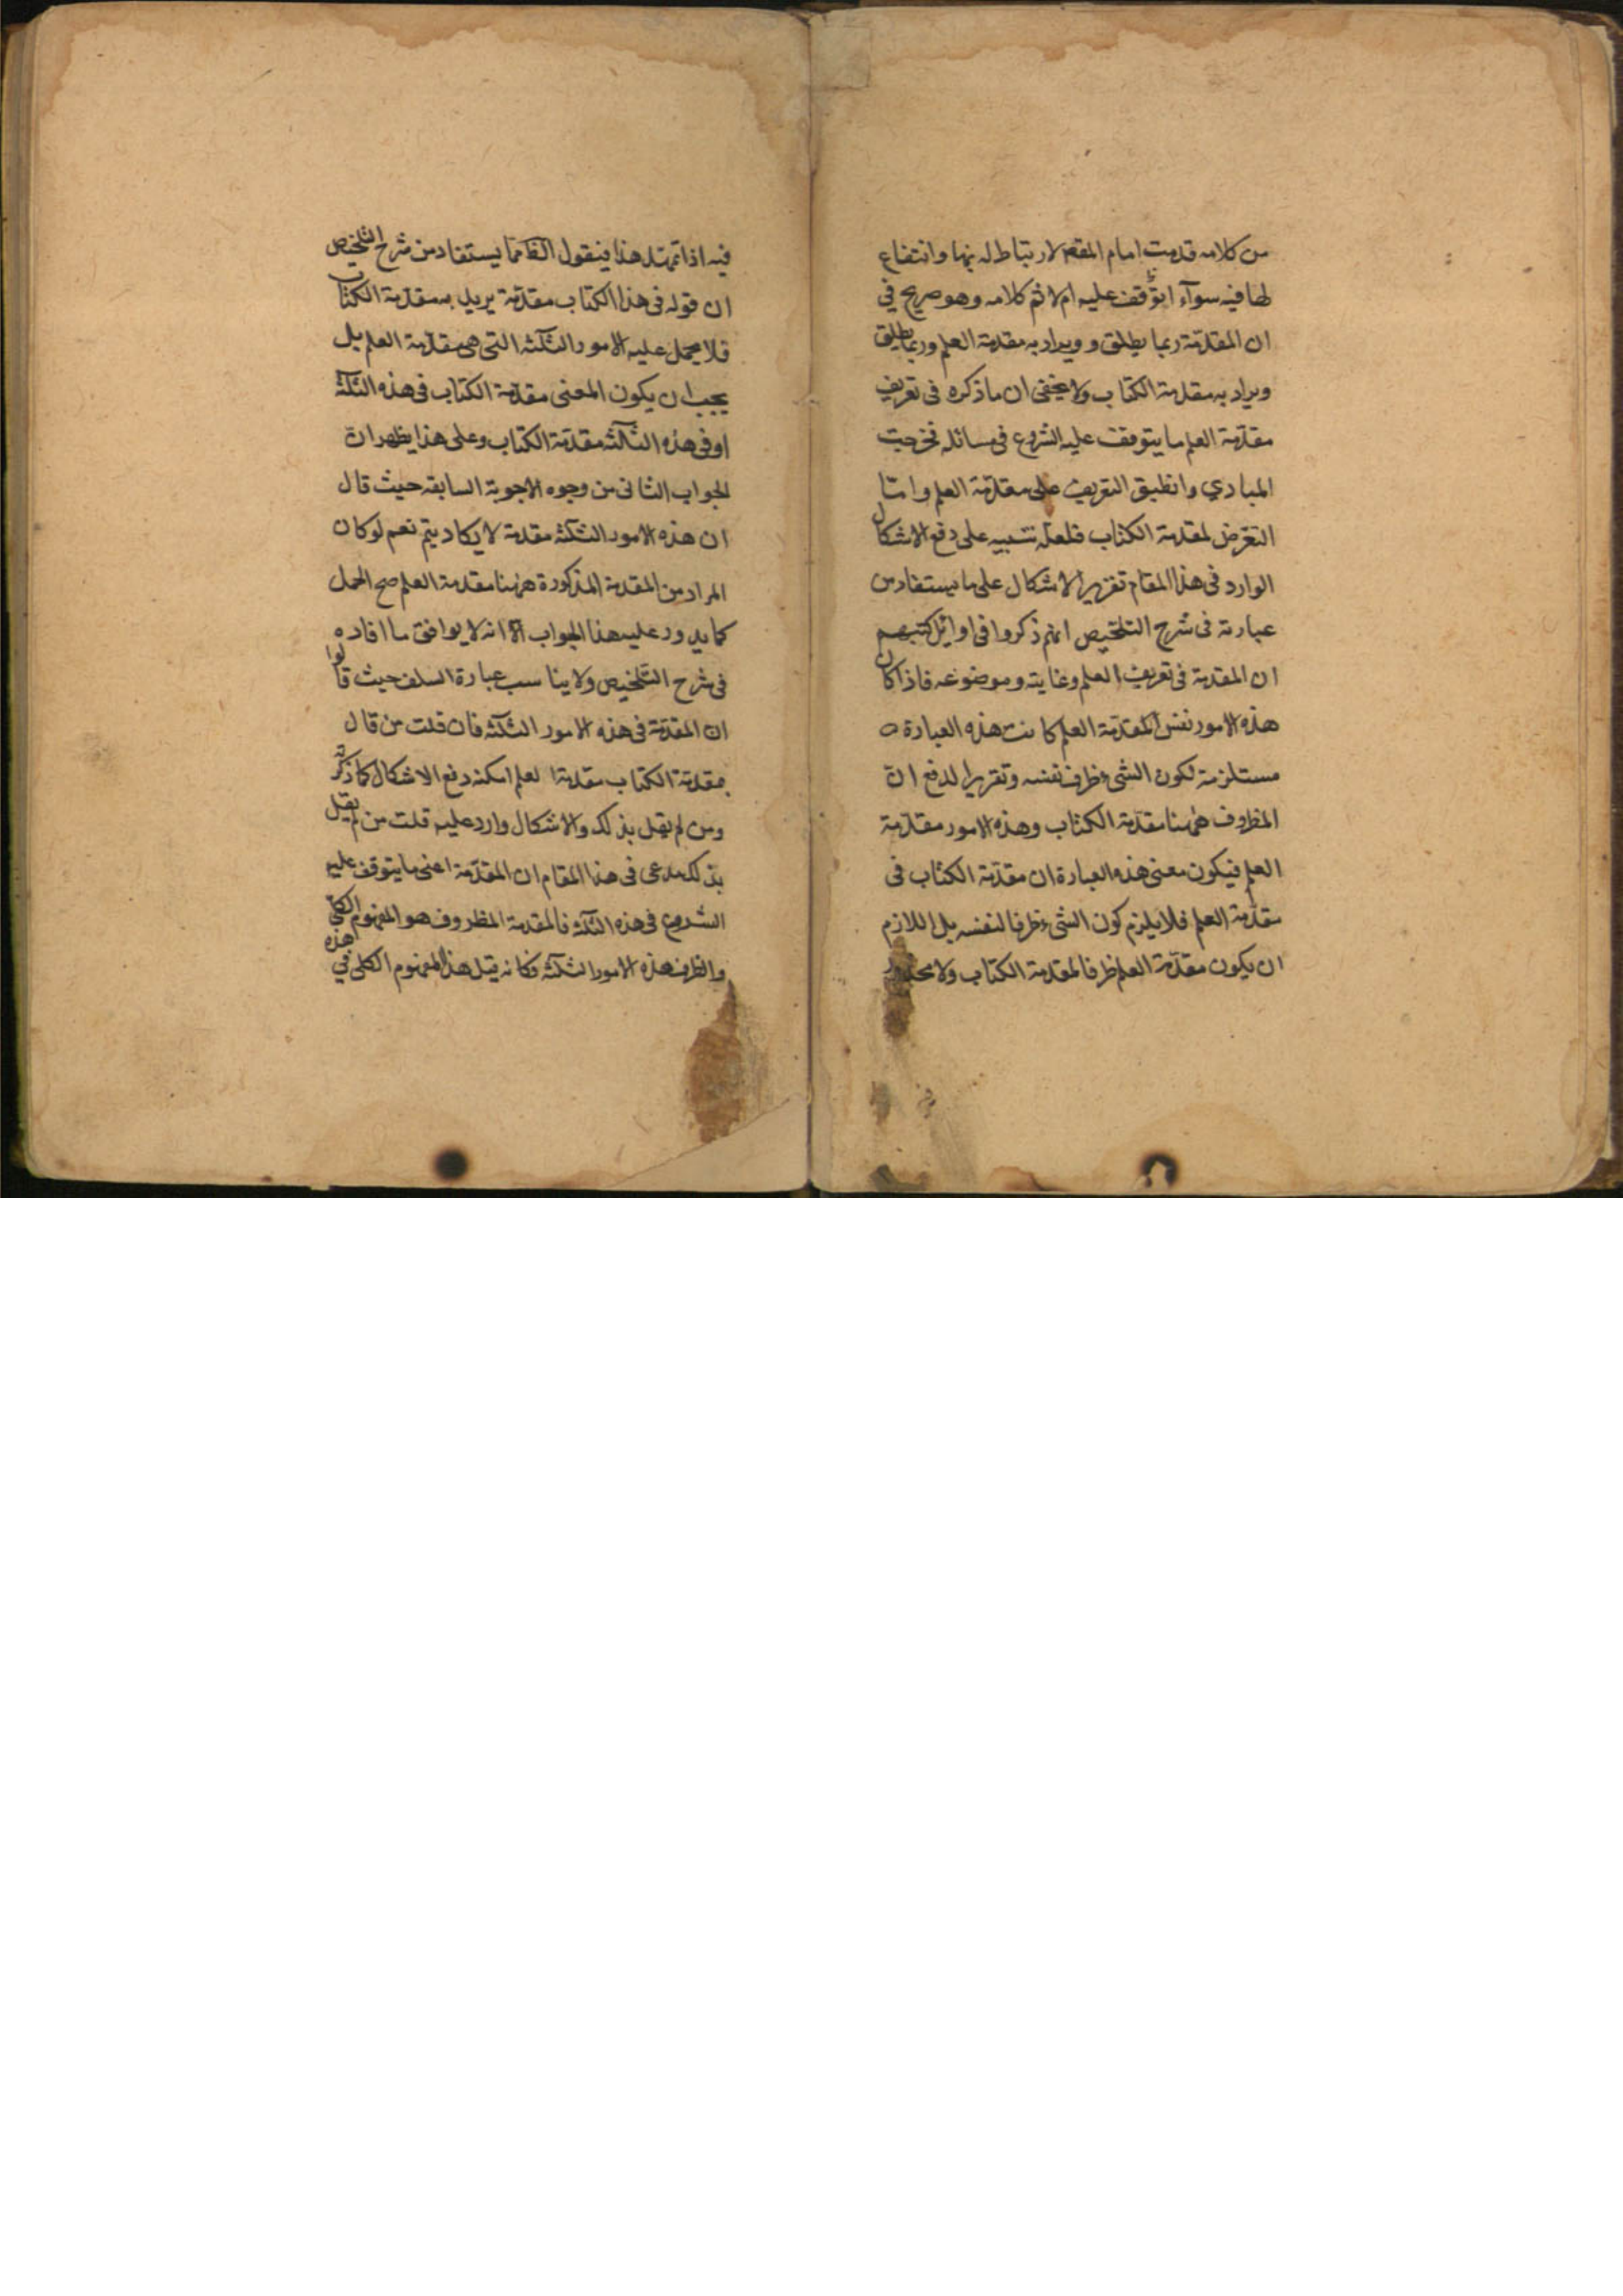 من كلامه قدمت امام المقصود لارتباط له بها وانتفاع
لها فيه سوآء توقف عليه ام لا ثم كلامه وهو صريح في
ان المقدّمة ربما يطلق و ويراد به مقدمة العلم وربما يطلق
ويراد به مقدمة الكتاب ولا يخفى ان ما ذكره فى تعريف
مقدّمة العلم ما يتوقف عليه الشروع فى مسائله فخرجت
المبادي وانطبق التعريف على مقدّمة العلم وامّا
التعرّض لمقدمة الكتاب فلعلّه تنبيه على دفع الاشكال
الوارد فى هذا المقام تقرير الاشكال على ما يستفاد من
عبارته فى شرح التلخيص انهم ذكروا فى اوائل كتبهم
ان المقدمة فى تعريف العلم وغايته وموضوعه فاذا كان
هذه الامور نفس المقدّمة العلم كانت هذه العبارة
مستلزمة لكون الشىء ظرف نفسه وتقرير الدفع انّ
المظروف ههنا مقدّمة الكتاب وهذه الامور مقدّمة
العلم فيكون معنى هذه العبارة ان مقدّمة الكتاب فى
مقدّمة العلم فلا يلزم كون الشىء ظرفا لنفسه بل اللازم
ان يكون مقدّمة العلم ظرفا لمقدمة الكتاب ولا محذور
فيه اذا تمهّد هذا فنقول الظ مما يستفاد من شرح التلخيص
ان قوله فى هذا الكتاب مقدّمة يريد به مقدّمة الكتاب
فلا يحمل عليه الامور الثلثة التى هى مقدّمة العلم بل
يجب ان يكون المعنى مقدّمة الكتاب فى هذه الثلثة
او فى هذه الثلثة مقدّمة الكتاب وعلى هذا يظهر انّ
الجواب الثانى من وجوه الاجوبة السابقه حيث قال
ان هذه الامور الثلثة مقدمة لا يكاد يتم نعم لو كان
المراد من المقدمة المذكورة ههنا مقدمة العلم صح الحمل
كما يدور عليه هذا الجواب الّا انه لا يوافق ما افاده
فى شرح التّلخيص ولا يناسب عبارة السلف حيث قالوا
ان المقدّمة فى هذه الامور الثلثة فان قلت من قال
بمقدّمة الكتاب مقدمة العلم امكنه دفع الاشكال كما ذكره
ومن لم يقل بذلك والاشكال وارد عليه قلت من لم يقل
بذلك مدعى فى هذا المقام ان المقدّمة اعنى ما يتوقف عليه
الشروع فى هذه الثلثة فالمقدمة المظروف هو المفهوم الكلّي
والظرف هذه الامور الثلثة فكانه قيل هذا المفهوم الكلى في هذه